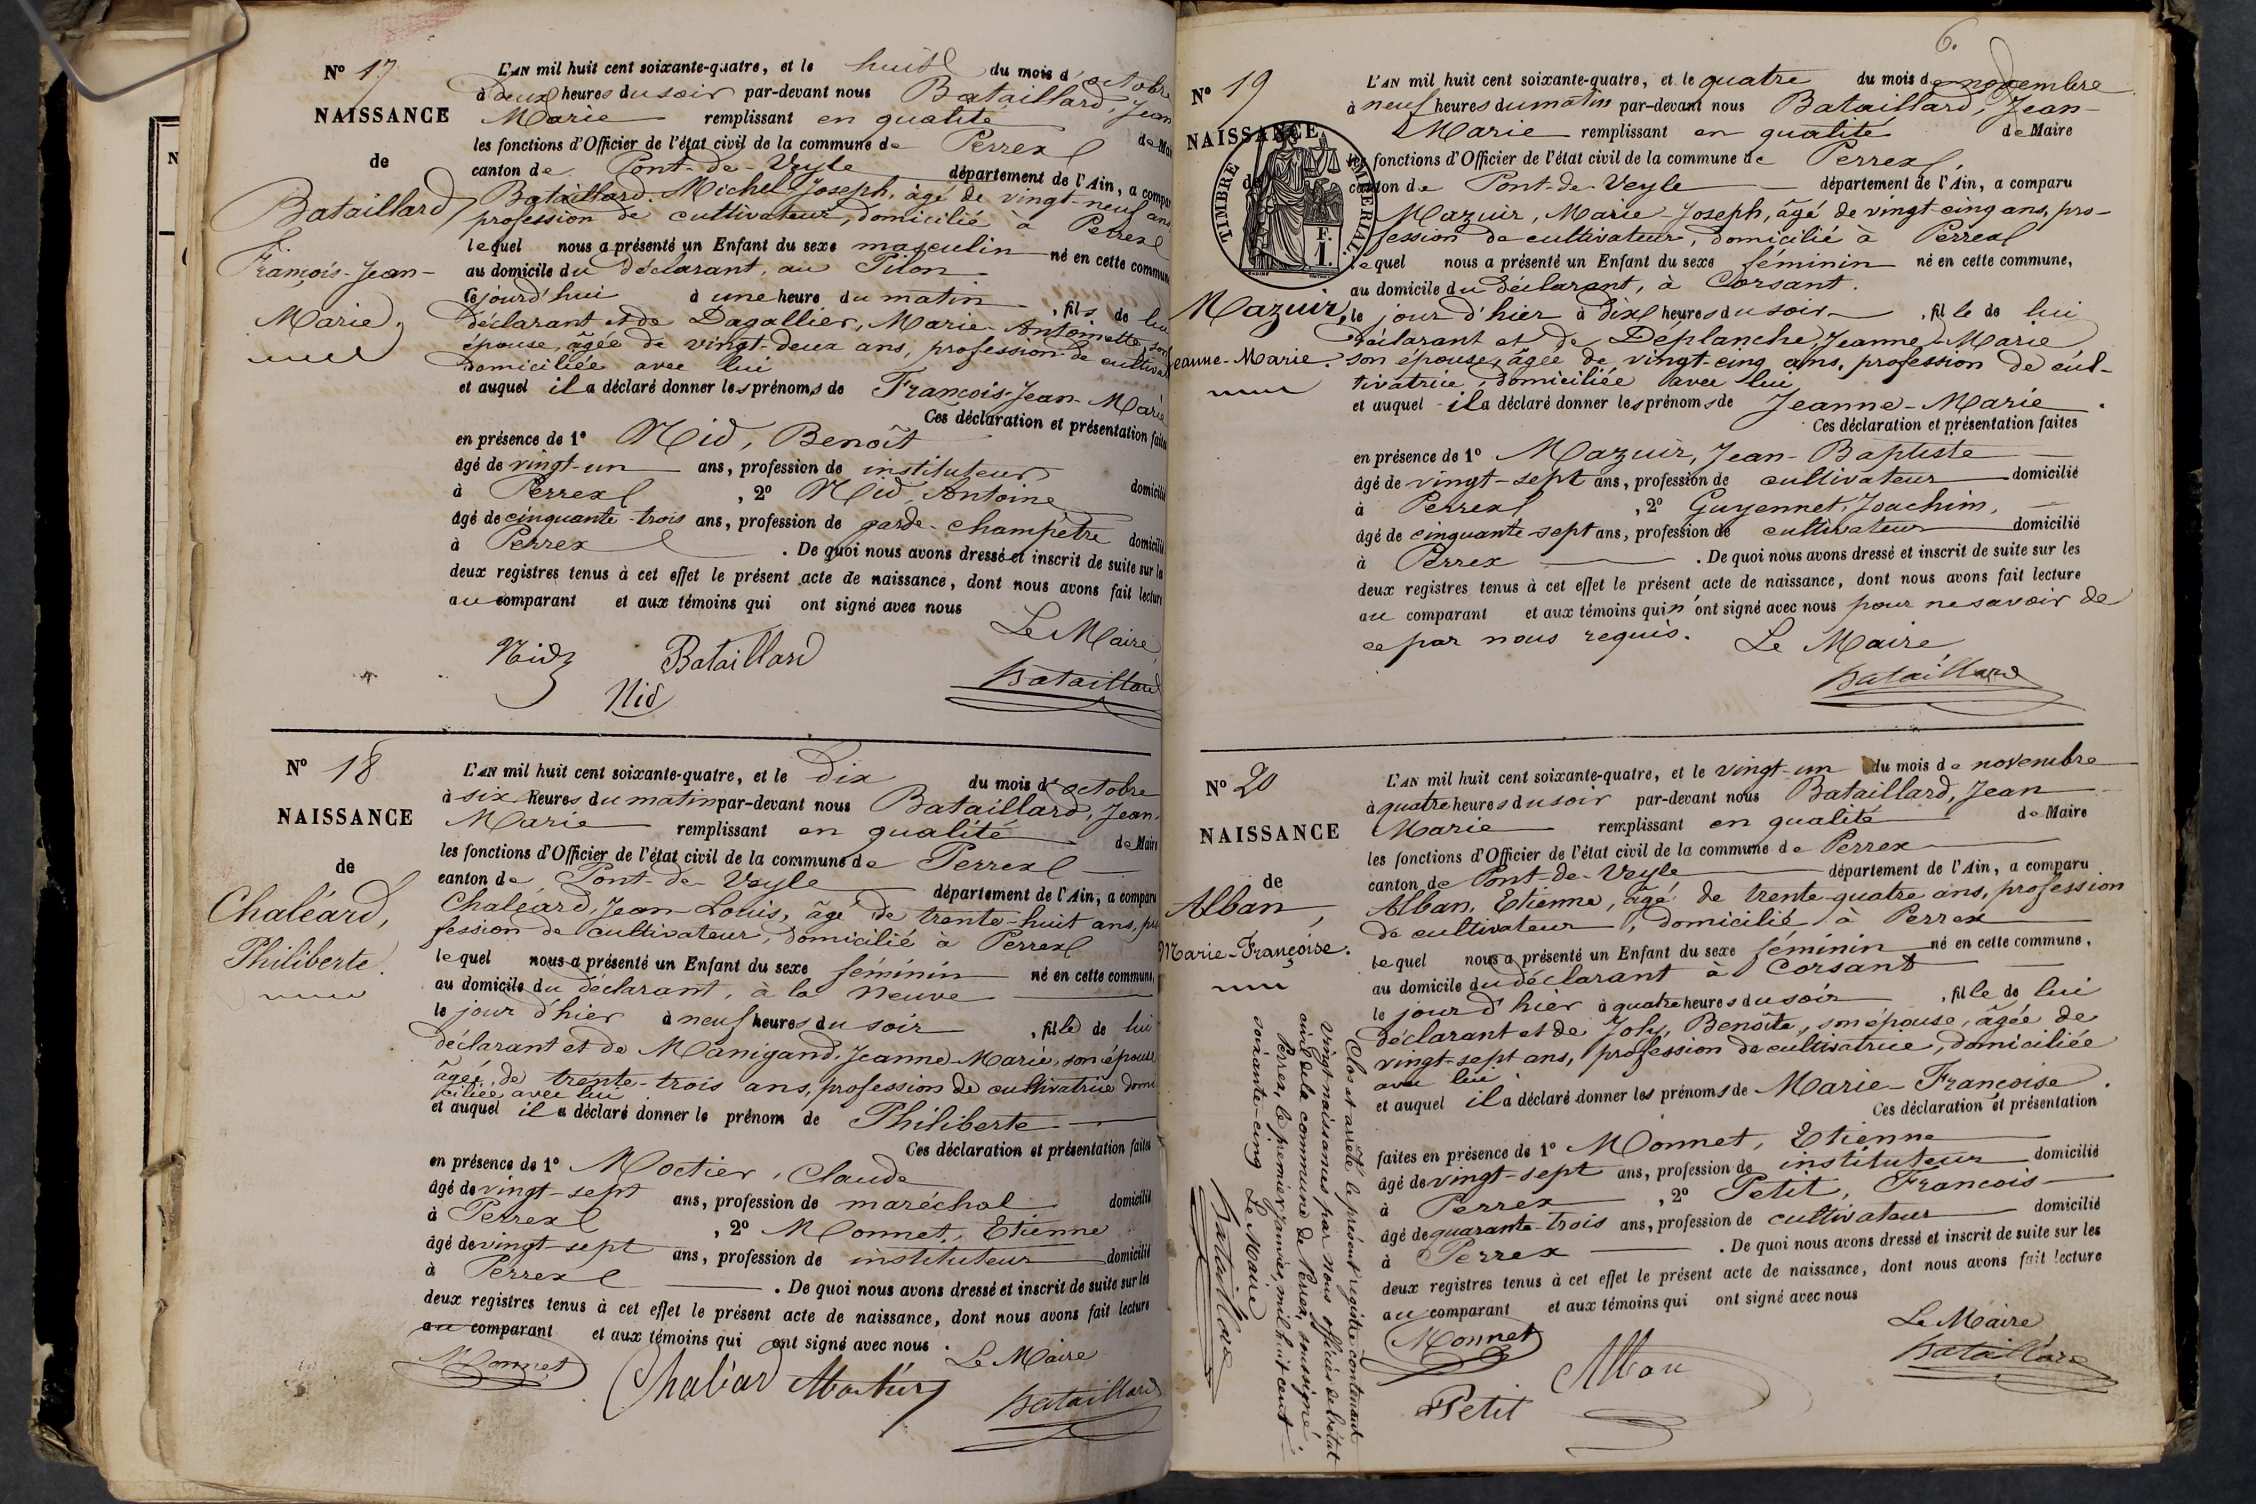 N° 17
NAISSANCE
de
Bataillard
François-Jean-
Marie,
L'AN mil huit cent soixante-quatre, et le huit du mois d'octobre
à deux heures du soir par-devant nous Bataillard, Jean
Marie remplissant en qualité de Mai
les fonctions d'Officier de l'état civil de la commune de Perrex
canton de Pont-de-Veyle département de l'Ain, a compar
Bataillard, Michel-Joseph, âgé de vingt-neuf ans,
profession de cultivateur, domicilié à Perrex
lequel nous a présenté un Enfant du sexe masculin né en cette commune
au domicile du déclarant, au Pilon
ce jourd'hui à une heure du matin, fils de lui
déclarant et de Dagallier, Marie-Antoinette, son
épouse, âgée de vingt-deux ans, profession de cultivat
domiciliée avec lui
et auquel il a déclaré donner les prénoms de François-Jean-Marie
Ces déclaration et présentation faites
en présence de 1° Nid, Benoît
âgé de vingt-un ans, profession de instituteur domicilié
à Perrex, 2° Nid, Antoine
âgé de cinquante-trois ans, profession de garde-champêtre domicilié
à Perrex. De quoi nous avons dressé et inscrit de suite sur les
deux registres tenus à cet effet le présent acte de naissance, dont nous avons fait lecture
au comparant et aux témoins qui ont signé avec nous
Le Maire,
Nid Bataillard
Nid Bataillard
N° 18
NAISSANCE
de
Chaléard,
Philiberte.
L'AN mil huit cent soixante-quatre, et le dix du mois d'octobre
à six heures du matin par-devant nous Bataillard, Jean-
Marie remplissant en qualité de Maire
les fonctions d'Officier de l'état civil de la commune de Perrex
canton de Pont-de-Veyle département de l'Ain, a comparu
Chaléard, Jean-Louis, âgé de trente-huit ans, pro
fession de cultivateur, domicilié à Perrex
lequel nous a présenté un Enfant du sexe féminin né en cette commune,
au domicile du déclarant, à la Neuve
le jour d'hier à neuf heures du soir, fille de lui
déclarant et de Manigand, Jeanne-Marie, son épouse
âgée de trente-trois ans, profession de cultivatrice domi
ciliée avec lui
et auquel il a déclaré donner le prénom de Philiberte
Ces déclaration et présentation faites
en présence de 1° Moctier, Claude
âgé de vingt-sept ans, profession de maréchal domicilié
à Perrex, 2° Monnet, Etienne
âgé de vingt-sept ans, profession de instituteur domicilié
à Perrex. De quoi nous avons dressé et inscrit de suite sur les
deux registres tenus à cet effet le présent acte de naissance, dont nous avons fait lecture
au comparant et aux témoins qui ont signé avec nous.
Le Maire
Monnet Chaléard Bataillard
6.
N° 19
NAISSANCE
de
TIMBRE IMPERIAL
F.
1.
Mazuir,
Jeanne-Marie.
L'AN mil huit cent soixante-quatre, et le quatre du mois de novembre
à neuf heures du matin par-devant nous Bataillard, Jean-
Marie remplissant en qualité de Maire
les fonctions d'Officier de l'état civil de la commune de Perrex,
canton de Pont-de-Veyle département de l'Ain, a comparu
Mazuir, Marie-Joseph, âgé de vingt-cinq ans, pro-
fession de cultivateur, domicilié à Perrex
lequel nous a présenté un Enfant du sexe féminin né en cette commune,
au domicile du déclarant, à Corsant.
le jour d'hier à dix heures du soir, fille de lui
déclarant et de Déplanche, Jeanne-Marie
son épouse, âgée de vingt-cinq ans, profession de cul-
tivatrice, domiciliée avec lui
et auquel il a déclaré donner les prénoms de Jeanne-Marie.
Ces déclaration et présentation faites
en présence de 1° Mazuir, Jean-Baptiste
âgé de vingt-sept ans, profession de cultivateur domicilié
à Perrex, 2° Guyennet, Joachim,
âgé de cinquante-sept ans, profession de cultivateur domicilié
à Perrex. De quoi nous avons dressé et inscrit de suite sur les
deux registres tenus à cet effet le présent acte de naissance, dont nous avons fait lecture
au comparant et aux témoins qui n'ont signé avec nous pour ne savoir de
ce par nous requis. Le Maire
Bataillard
N° 20
NAISSANCE
de
Alban,
Marie-Françoise.
L'AN mil huit cent soixante-quatre, et le vingt-un du mois de novembre
à quatre heures du soir par-devant nous Bataillard, Jean
Marie remplissant en qualité de Maire
les fonctions d'Officier de l'état civil de la commune de Perrex
canton de Pont-de-Veyle département de l'Ain, a comparu
Alban, Etienne, âgé de trente-quatre ans, profession
de cultivateur, domicilié à Perrex
lequel nous a présenté un Enfant du sexe féminin né en cette commune,
au domicile du déclarant à Corsant
le jour d'hier à quatre heures du soir, fille de lui
déclarant et de Joly, Benoîte, son épouse, âgée de
vingt-sept ans, profession de cultivatrice, domiciliée
avec lui
et auquel il a déclaré donner les prénoms de Marie-Françoise.
Ces déclaration et présentation
faites en présence de 1° Monnet, Etienne
âgé de vingt-sept ans, profession de instituteur domicilié
à Perrex, 2° Petit, François
âgé de quarante-trois ans, profession de cultivateur domicilié
à Perrex. De quoi nous avons dressé et inscrit de suite sur les
deux registres tenus à cet effet le présent acte de naissance, dont nous avons fait lecture
au comparant et aux témoins qui ont signé avec nous
Le Maire
Monnet Alban Bataillard
Petit
Clos et arrêté le présent registre contenant
vingt naissances par nous officier de l'état
civil de la commune de Perrex, soussigné,
Perrex, le premier janvier, mil huit cent
soixante-cinq Le Maire
Bataillard